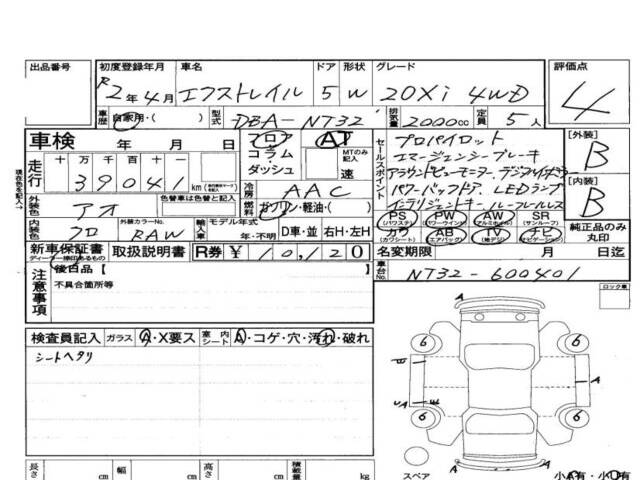 出品番号 初度登録年月 車名 ドア 形状 グレード 評価点
R2年4月 エクストレイル 5 W 20Xi 4WD 4
車歴 自家用・( ) 型式 DBA-NT32 排気量 2000cc 定員 5人
車検 年 月 日 フロア AT セールスポイント プロパイロット [外装]
コラム MTのみ記入 エマージェンシーブレーキ B
走行 十 万 千 百 十 一 ダッシュ 速
現在色を記入→ 39041 km 冷房 AAC パワーバックドア LEDランプ [内装]
外装色 アオ 色替車は色替と記入 燃料 ガソリン・軽油・( ) インテリジェントキー ルーフレールレス B
PS (パワステ) PW (パワーウインド) AW (アルミホイル) SR (サンルーフ) 純正品のみ丸印
内装色 クロ 外装カラーNo. RAW 輸入車 モデル年式 年・不明 D車・並 右H・左H カワ (カワシート) AB (エアバック) TV (地デジ) ナビ (ナビゲーション)
新車保証書 ディーラー捺印あるもの 取扱説明書 R券 ¥ 10,120 名変期限 月 日迄
注意事項 後日品【 】 車台No. NT32-600401
不具合箇所等 ロック車
検査員記入 ガラス A・X要ス 室内シート A・コゲ・穴・汚れ・破れ A
シートヘタリ 6 6
E A
UA E
6 6
A
長さ cm 幅 cm 高さ cm 積載量 kg スペア 小A有・小U有